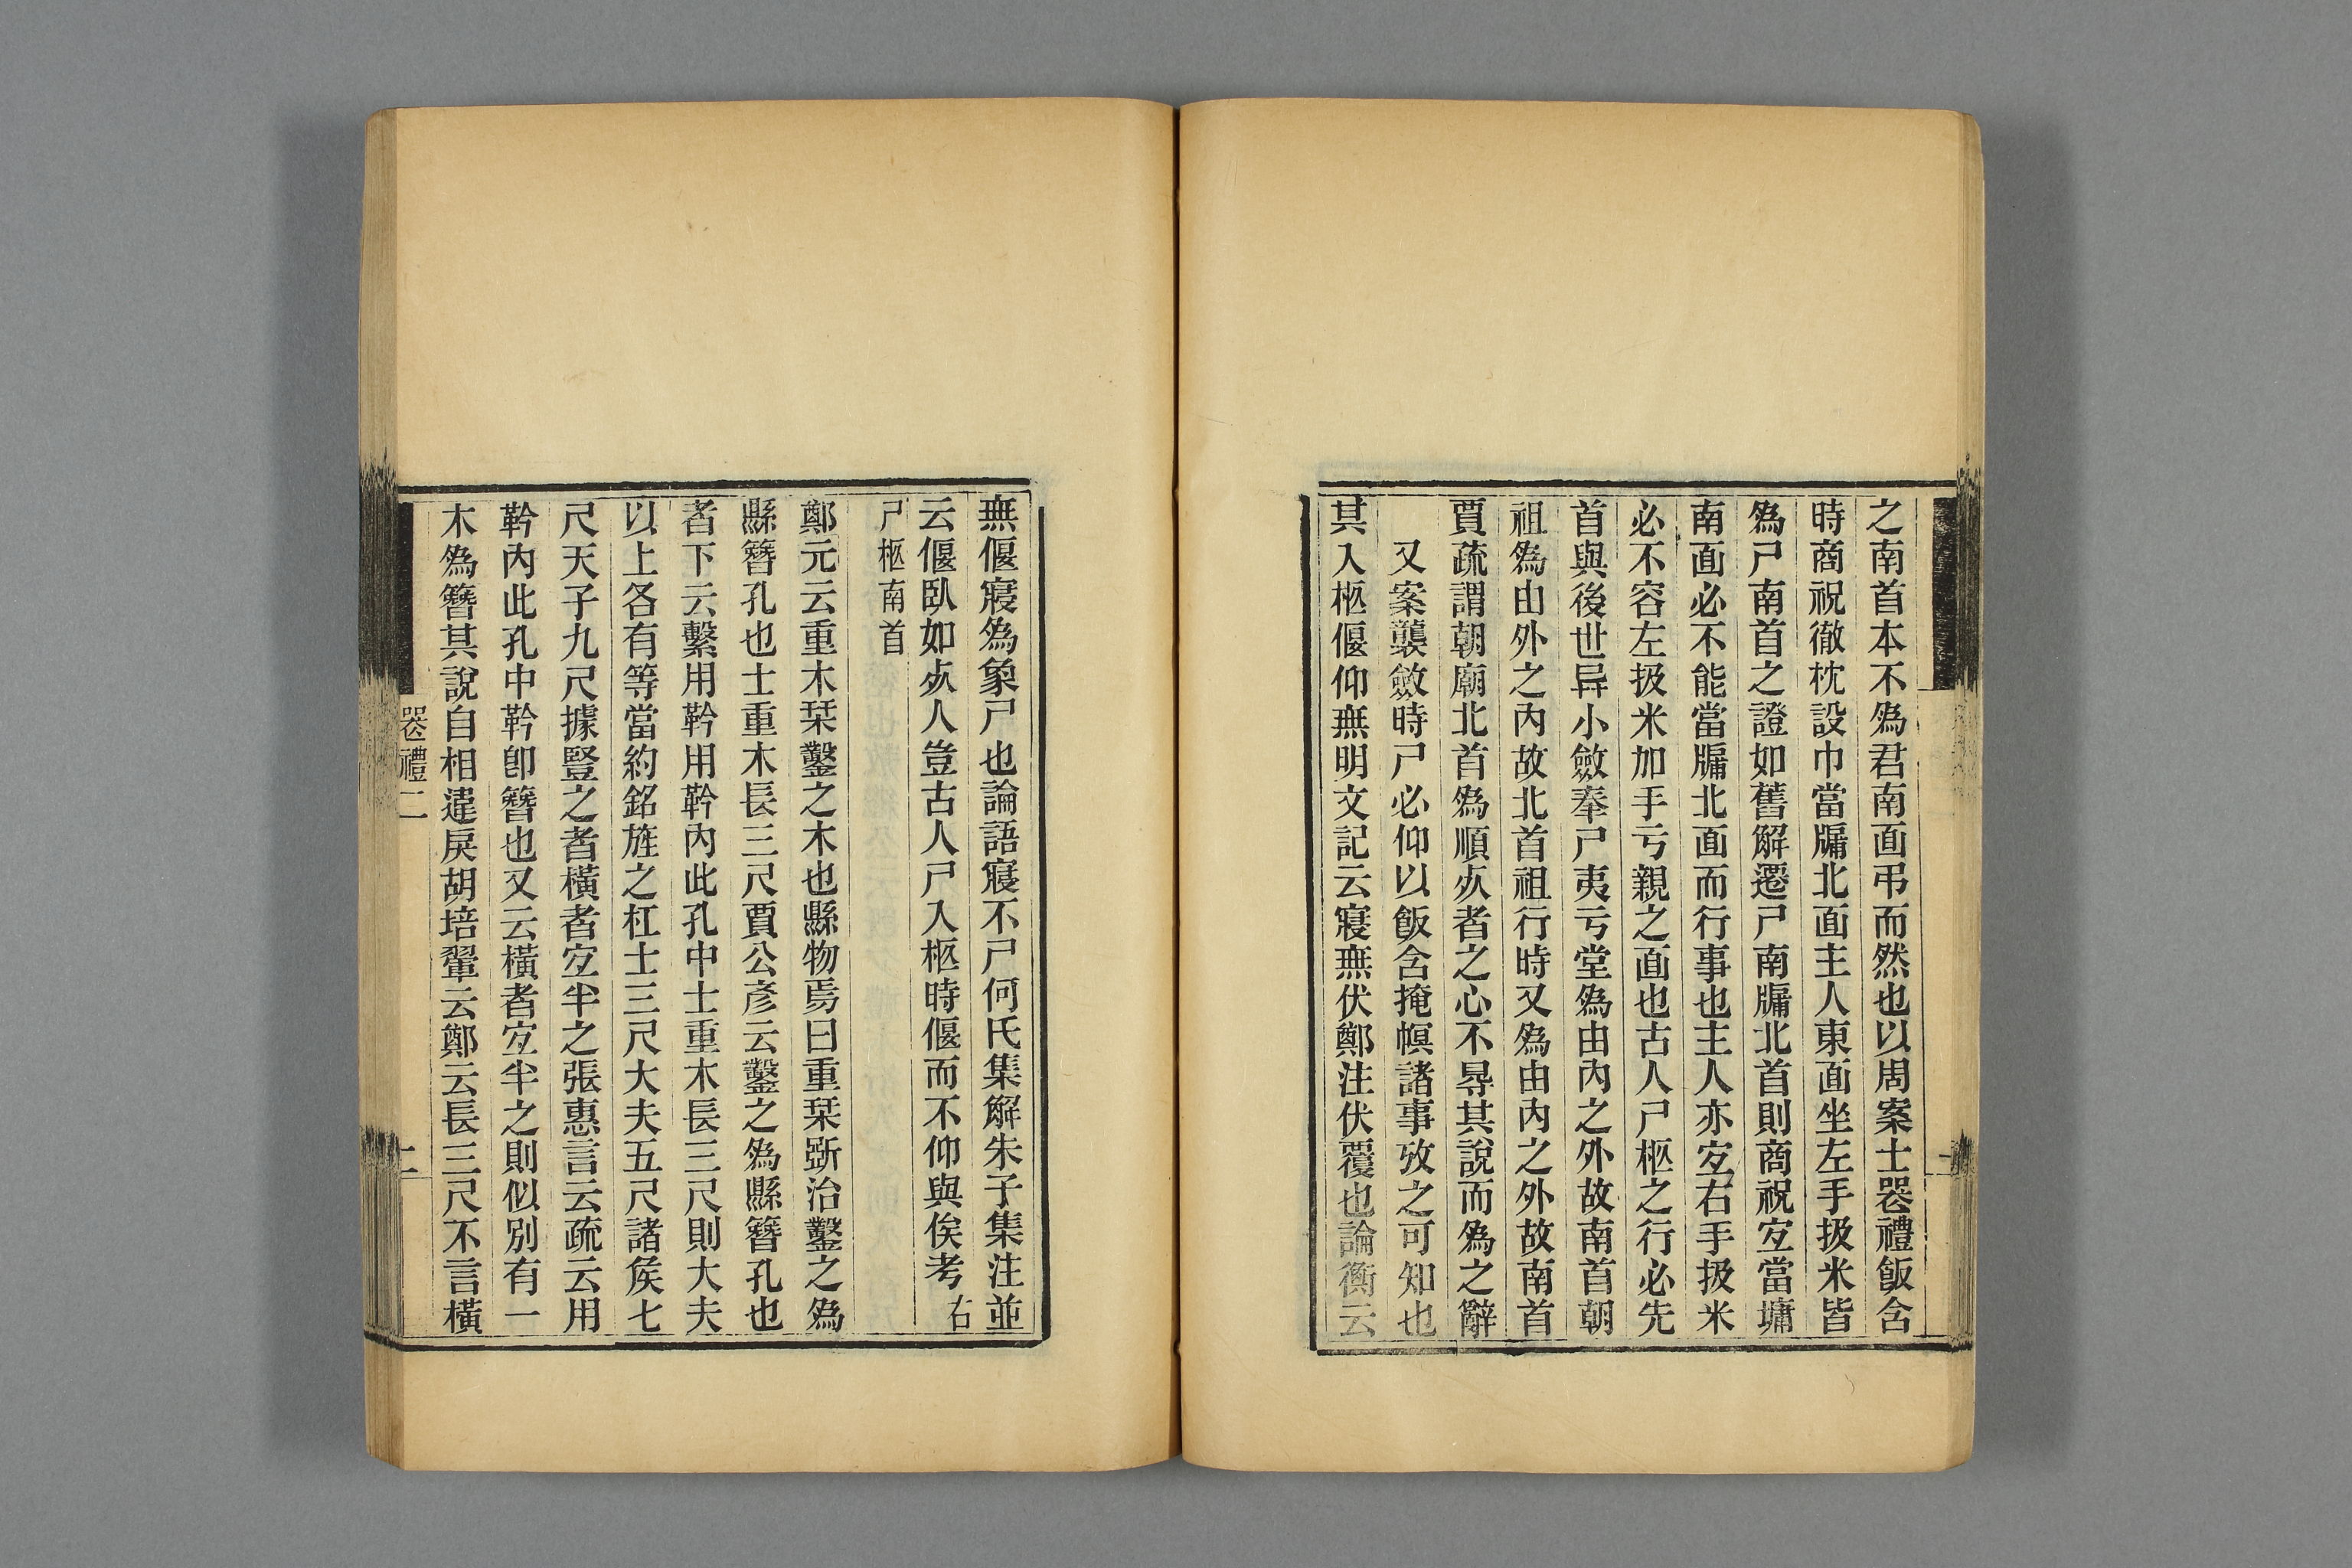 之南首本不爲君南面弔而然也以周案士喪禮飯含
時商祝徹枕設巾當牖北面主人東面坐左手扱米皆
爲尸南首之證如舊解遷尸南牖北首則商祝宐當墉
南面必不能當牖北面而行事也主人亦宐右手扱米
必不容左扱米加手亏親之面也古人尸柩之行必先
首與後世异小斂奉尸夷亏堂爲由內之外故南首朝
祖爲由外之內故北首祖行時又爲由內之外故南首
賈疏謂朝廟北首爲順𣦸者之心不㝵其說而爲之辭
又案襲斂時尸必仰以飯含掩幎諸事攷之可知也
其入柩偃仰無明文記云寢無伏鄭注伏覆也論衡云
無偃寢爲象尸也論語寢不尸何氏集解朱子集注並
云偃臥如𣦸人豈古人尸入柩時偃而不仰與俟考右
尸柩南首
鄭元云重木栞鑿之木也縣物焉曰重栞斲治鑿之爲
縣簪孔也士重木長三尺賈公彥云鑿之爲縣簪孔也
者下云繫用靲用靲內此孔中士重木長三尺則大夫
以上各有等當約銘旌之杠士三尺大夫五尺諸矦七
尺天子九尺據豎之者橫者宐半之張惠言云疏云用
靲內此孔中靲卽簪也又云橫者宐半之則似別有一
木爲簪其說自相違戾胡培翬云鄭云長三尺不言橫
喪禮二
二